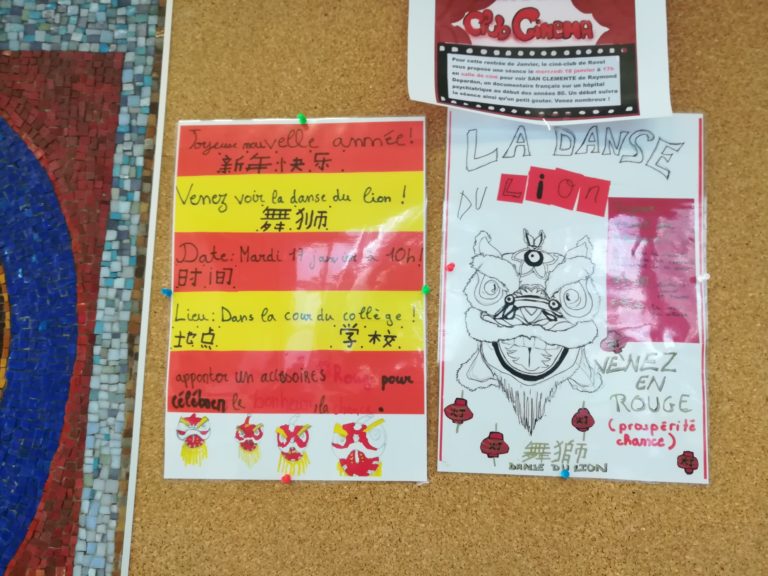 Club Cinema
Pour cette rentrée de Janvier, le ciné-club de Ravel
vous propose une séance le mercredi 18 janvier à 17h
en salle de ciné pour voir SAN CLEMENTE de Raymond
Depardon, un documentaire français sur un hôpital
psychiatrique au début des années 80. Un débat suivra
la séance ainsi qu'un petit gouter. Venez nombreux !
Joyeuse nouvelle année!
新年快乐
Venez voir la danse du lion !
舞狮
Date: Mardi 17 janvier à 10h!
时间
Lieu: Dans la cour du collège !
地点 学校
apporter un accessoires Rouge pour
célébrer le bonheur, la
LA DANSE
DU Lion
VENEZ
EN
ROUGE
(prospérité
chance)
舞獅
DANSE DU LION